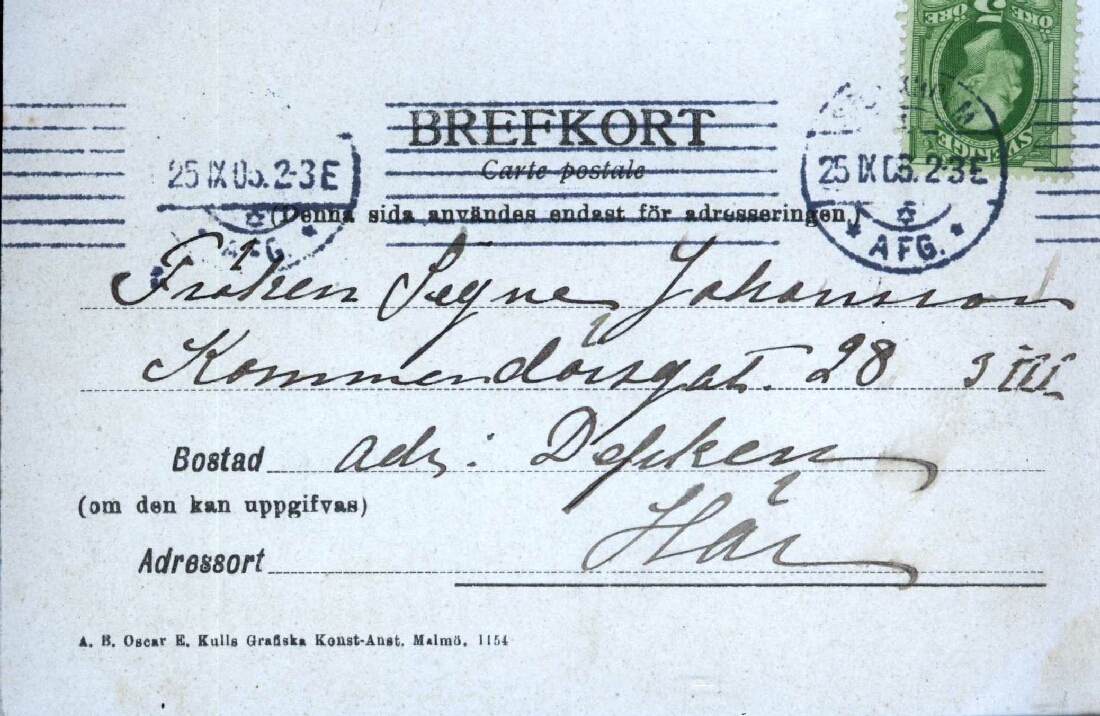 5
ÖRE ÖRE
SVERIGE
BREFKORT
Carte postale
25 IX 05. 2-3 E
25 IX 05. 2-3 E
(Denna sida användes endast för adresseringen.)
AFG.
AFG.
Fröken Signe Johansson
Kommendörsgat. 28 3 III
Bostad adr: Depken
(om den kan uppgifvas)
Adressort Här
A. B. Oscar E. Kulls Grafiska Konst-Anst. Malmö. 1154